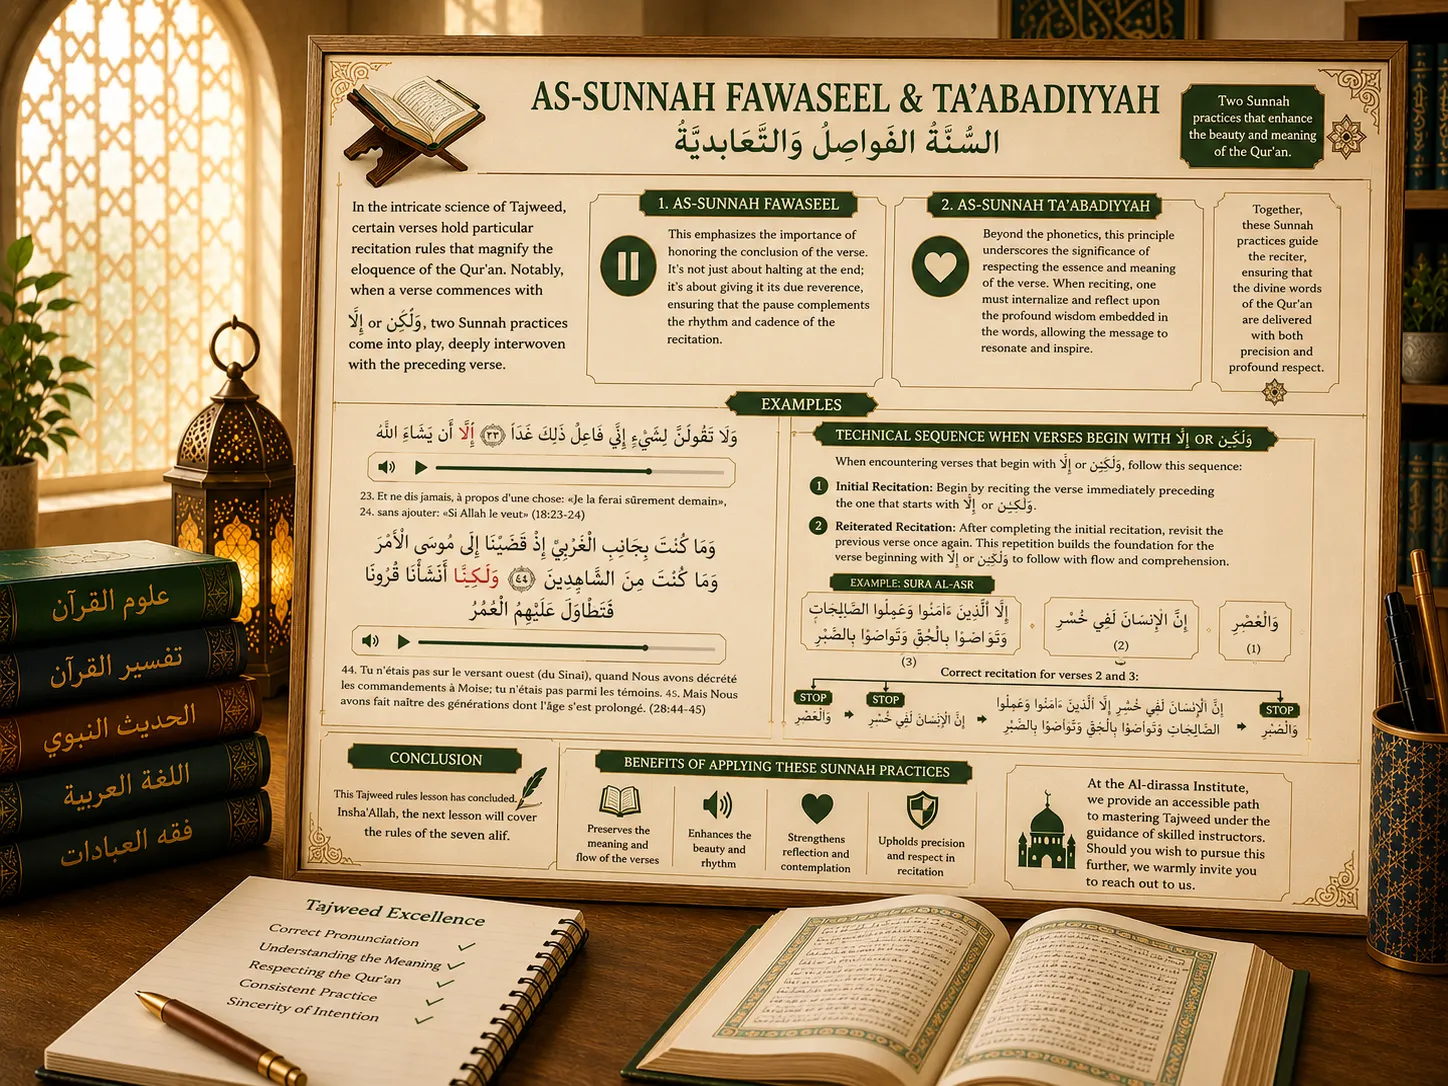 AS-SUNNAH FAWASEEL & TA'ABADIYYAH
السُّنَّةُ الفَواصِلُ وَالتَّعَابديَّةُ
Two Sunnah
practices that enhance
the beauty and meaning
of the Qur'an.
In the intricate science of Tajweed,
certain verses hold particular
recitation rules that magnify the
eloquence of the Qur'an. Notably,
when a verse commences with
إِلَّا or وَلَٰكِن, two Sunnah practices
come into play, deeply interwoven
with the preceding verse.
1. AS-SUNNAH FAWASEEL
This emphasizes the importance of
honoring the conclusion of the verse.
It's not just about halting at the end;
it's about giving it its due reverence,
ensuring that the pause complements
the rhythm and cadence of the
recitation.
2. AS-SUNNAH TA'ABADIYYAH
Beyond the phonetics, this principle
underscores the significance of
respecting the essence and meaning
of the verse. When reciting, one
must internalize and reflect upon
the profound wisdom embedded in
the words, allowing the message to
resonate and inspire.
Together,
these Sunnah
practices guide
the reciter,
ensuring that
the divine words
of the Qur'an
are delivered
with both
precision and
profound respect.
EXAMPLES
وَلَا تَقُولَنَّ لِشَيْءٍ إِنِّي فَاعِلٌ ذَلِكَ غَدَاً ٢٣ إِلَّا أَن يَشَاءَ اللَّهُ
23. Et ne dis jamais, à propos d'une chose: «Je la ferai sûrement demain»,
24. sans ajouter: «Si Allah le veut» (18:23-24)
وَمَا كُنْتَ بِجَانِبِ الْغَرْبِيِّ إِذْ قَضَيْنَا إِلَى مُوسَى الْأَمْرَ
وَمَا كُنْتَ مِنَ الشَّاهِدِينَ ٤٤ وَلَكِنَّا أَنْشَأْنَا قُرُونًا
فَتَطَاوَلَ عَلَيْهِمُ الْعُمُرُ
44. Tu n'étais pas sur le versant ouest (du Sinai), quand Nous avons décrété
les commandements à Moise; tu n'étais pas parmi les témoins. 45. Mais Nous
avons fait naître des générations dont l'âge s'est prolongé. (28:44-45)
TECHNICAL SEQUENCE WHEN VERSES BEGIN WITH إِلَّا OR وَلَٰكِن
When encountering verses that begin with إِلَّا or وَلَٰكِن, follow this sequence:
1 Initial Recitation: Begin by reciting the verse immediately preceding
the one that starts with إِلَّا or وَلَٰكِن.
2 Reiterated Recitation: After completing the initial recitation, revisit the
previous verse once again. This repetition builds the foundation for the
verse beginning with إِلَّا or وَلَٰكِن to follow with flow and comprehension.
EXAMPLE: SURA AL-ASR
وَالْعَصْرِ
(1)
إِنَّ الْإِنسَانَ لَفِي خُسْرٍ
(2)
إِلَّا ٱلَّذِينَ ءَامَنُوا وَعَمِلُوا الصَّالِحَاتِ
وَتَوَاصَوْا بِالْحَقِّ وَتَوَاصَوْا بِالصَّبْرِ
(3)
Correct recitation for verses 2 and 3:
STOP
STOP
STOP
وَالْعَصْرِ
إِنَّ الْإِنسَانَ لَفِي خُسْرٍ
إِنَّ الْإِنسَانَ لَفِي خُسْرٍ إِلَّا الَّذِينَ ءَامَنُوا وَعَمِلُوا
الصَّالِحَاتِ وَتَوَاصَوْا بِالْحَقِّ وَتَوَاصَوْا بِالصَّبْرِ
CONCLUSION
This Tajweed rules lesson has concluded.
Insha'Allah, the next lesson will cover
the rules of the seven alif.
BENEFITS OF APPLYING THESE SUNNAH PRACTICES
Preserves the
meaning and
flow of the verses
Enhances the
beauty and
rhythm
Strengthens
reflection and
contemplation
Upholds precision
and respect in
recitation
At the Al-dirassa Institute,
we provide an accessible path
to mastering Tajweed under the
guidance of skilled instructors.
Should you wish to pursue this
further, we warmly invite you
to reach out to us.
علوم القرآن
تفسير القرآن
الحديث النبوي
اللغة العربية
فقه العبادات
Tajweed Excellence
Correct Pronunciation
Understanding the Meaning
Respecting the Qur'an
Consistent Practice
Sincerity of Intention